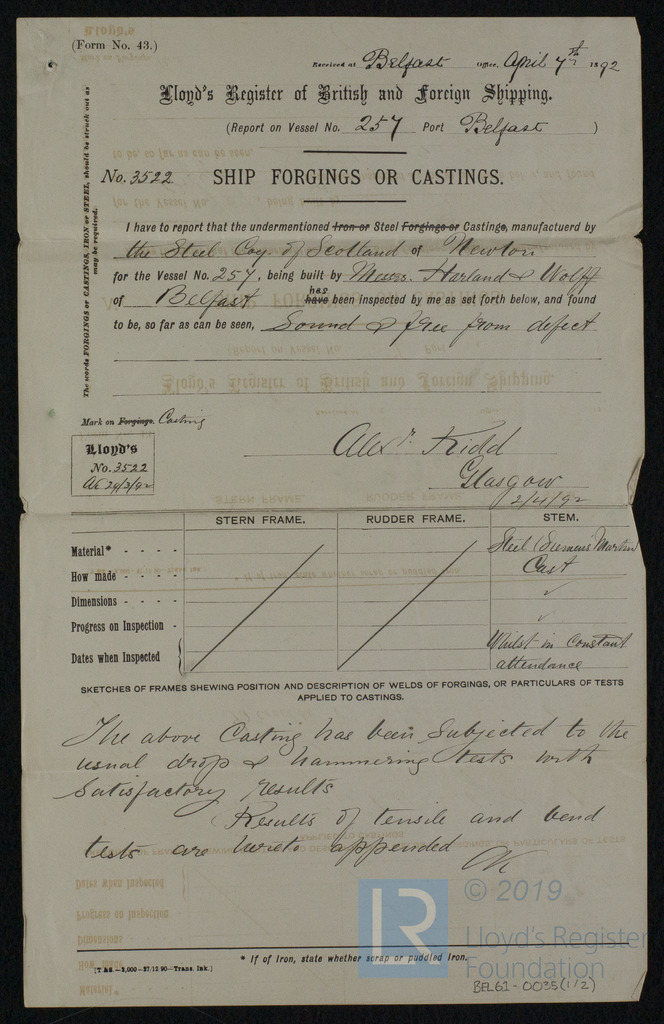 (Form No. 43.)
Received at Belfast Office, April 7th 1892
Lloyd's Register of British and Foreign Shipping.
(Report on Vessel No. 257 Port Belfast )
No. 3522 SHIP FORGINGS OR CASTINGS.
The words FORGINGS or CASTINGS, IRON or STEEL, should be struck out as
may be required.
I have to report that the undermentioned Iron or Steel Forgings or Castings, manufactuerd by
the Steel Coy. of Scotland of Newton
for the Vessel No. 257, being built by Messrs. Harland & Wolff
of Belfast have has been inspected by me as set forth below, and found
to be, so far as can be seen, Sound & free from defect
Mark on Forgings. Casting
Lloyd's
No. 3522
AK 29/3/92
Alexr. Kidd
Glasgow
2/4/92
STERN FRAME. RUDDER FRAME. STEM.
Material* - - - - Steel (Siemens Martin
How made - - - - Cast
Dimensions - - - - ✓
Progress on Inspection - ✓
Dates when Inspected Whilst in Constant
attendance
SKETCHES OF FRAMES SHEWING POSITION AND DESCRIPTION OF WELDS OF FORGINGS, OR PARTICULARS OF TESTS
APPLIED TO CASTINGS.
The above Casting has been subjected to the
usual drop & hammering tests with
satisfactory results
Results of tensile and bend
tests are hereto appended AK
* If of Iron, state whether scrap or puddled Iron.
[T & S.—2,000—27/12 90—Trans. Ink.]
LR
© 2019
Lloyd's Register
Foundation
BEL61-0035(1/2)